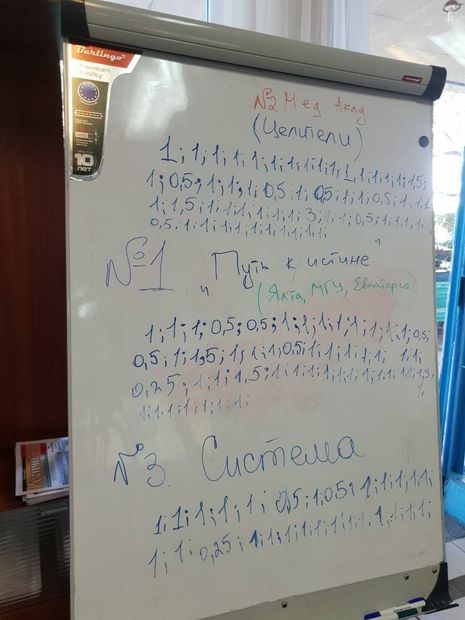 Berlingo
Premium
Quality
10
ЛЕТ
№2 Мед Акад
(Целители)
1; 1; 1; 1; 1; 1; 1; 1; 1; 1; 1; 1; 1; 1; 1; 1; 1,5;
1; 0,5; 1; 1; 1; 1; 0,5; 1; 0,5; 1; 1; 0,5; 1; 1; 1
1; 1,5; 1; 1; 1; 1; 1; 1; 3; 1; 1; 0,5; 1; 1; 1; 1;
0,5; 1; 1; 1; 1; 1; 1; 1; 1; 1; 1; 1;
№1 "Путь к истине"
(Ялта, МГУ, Евпатория)
1; 1; 1; 0,5; 0,5; 1; 1; 1; 1; 1; 1; 1; 1; 1; 0,5;
0,5; 1; 1,5; 1; 1; 1; 1; 0,5; 1; 1; 1; 1; 1; 1; 1; 1;
0,25; 1; 1; 1,5; 1; 1; 1; 1; 1; 1; 1; 1; 1; 1; 1; 1; 1,5;
1; 1; 1; 1; 1; 1; 1; 1;
№3. Система
1; 1; 1; 1; 1; 0,5; 1; 0,5; 1; 1; 1; 1; 1; 1;
1; 1; 0,25; 1; 1; 1; 1; 1; 1; 1; 1; 1; 1; 1; 1; 1;